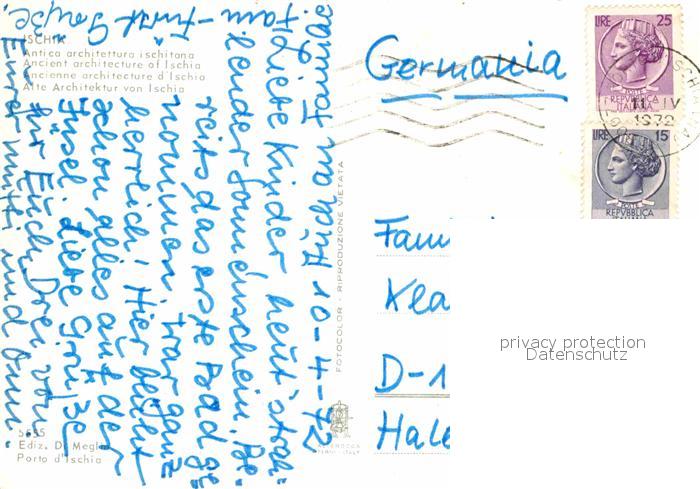 ISCHIA
Antica architettura ischitana
Ancient architecture of Ischia
Ancienne architecture d'Ischia
Alte Architektur von Ischia
4-72
Liebe Kinder, heut' strah=
lender Sonnenschein. Be=
reits das erste Baad ge=
nommen, war ganz
herrlich! Hier blüht
schon alles auf der
Insel. Liebe Grüße
für Euch Drei von
Eurer Mutti und Omi.
Grüße.
5655
Ediz. Di Meglio
Porto d'Ischia
FOTOCOLOR - RIPRODUZIONE VIETATA
Germania
LIRE 25
POSTE
REPVBBLICA
ITALIANA
11 IV
1972
LIRE 15
POSTE
REPVBBLICA
Fam
Kla
D-1
Hale
privacy protection
Datenschutz